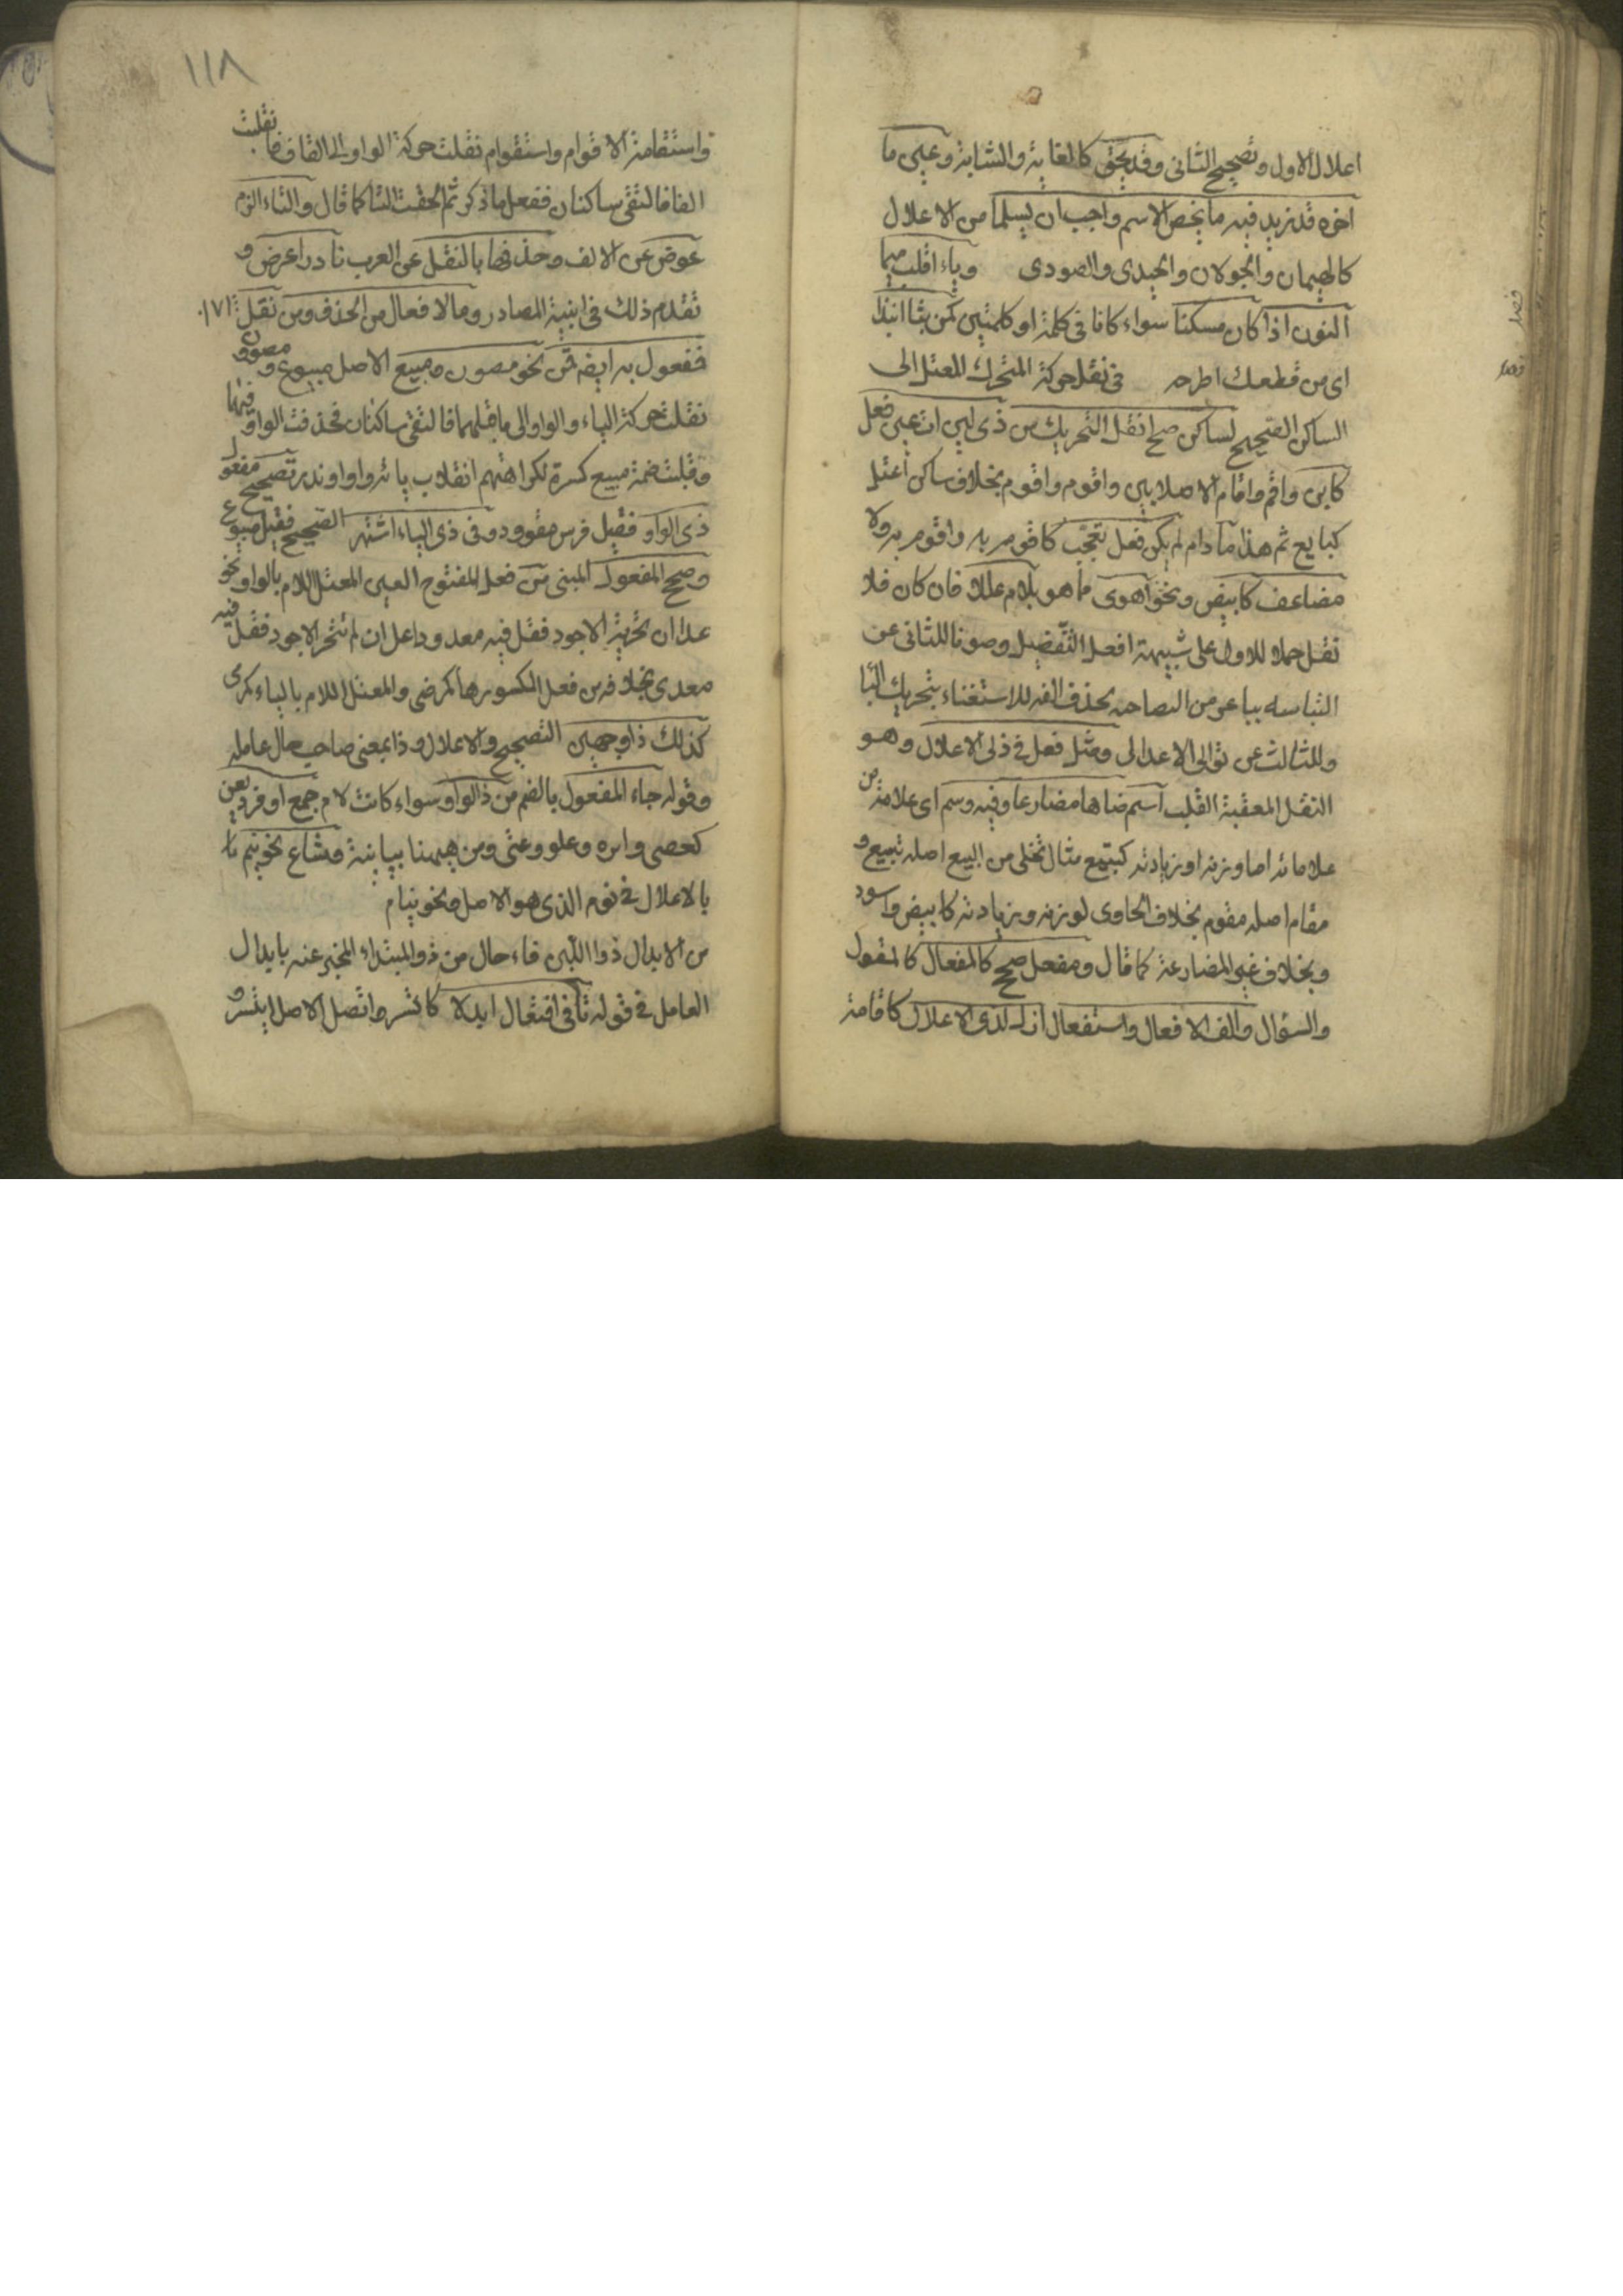 اعلال الاول وتصحيح الثانى وقد يحق كالغاية والثاية وعين ما
اخره قد زيد فيه ما يخص الاسم واجب ان يسلما من الاعلال
كالهيمان والجولان والحيدى والصورى وباء اقلب ميما
النون اذا كان مسكنا سواء كانا فى كلمة او كلمتين كمن بث انبذا
اى من قطعك اطرحه فى نقل حركة المتحرك المعتل الى
الساكن الصحيح لساكن صح انقل التحريك من ذى لين ات عين فعل
كابن واقم واقام الاصل ابين واقوم واقوم بخلاف ساكن اعتل
كبايع ثم هذا ما دام لم يكن فعل تعجب كاقوم به واقوم به ولا
مضاعف كابيض ونحو اهوى مما هو بلام عللا فان كان فلا
نقل حملا للاول على شبيهه افعل التفضيل وصونا للثانى عن
التباسه بباض من البضاضة بحذف الفه للاستغناء بتحريك البا
وللثالث عن توالى الاعلالى ومثل فعل فى ذى الاعلال وهو
النقل المعقبة القلب اسم ضاها مضارعا وفيه وسم اى علامة من
علاماته اما وزنه او زيادته كتبيع مثال تحلى من البيع اصله تبيع و
مقام اصله مقوم بخلاف الحاوى لوزنه وزيادته كابيض واسود
وبخلاف غير المضارعة كما قال ومفعل صحح كالمفعال كالمقول
والسؤال والف الافعال واستفعال ازل لذى الاعلال كاقامة
١١٨
واستقامة الاقوام واستقوام نقلت حركة الواو الى القاف فانقلبت
الفا فالتقى ساكنان ففعل ما ذكر ثم لحقت التا كما قال والتاء الزم
عوض عن الالف وحذفها بالنقل عن العرب نادرا عرض و
تقدم ذلك فى ابنية المصادر وما لافعال من الحذف ومن نقل
فمفعول به ايضا قمن نحو مصون ومبيع الاصل مبيوع ومصوون
نقلت حركة الياء والواو الى ما قبلهما فالتقى ساكنان فحذفت الواو فيهما
وقلبت ضمة مبيع كسرة لكراهتهم انقلاب يائه واوا وندر تصحيح مفعول
ذى الواو فقيل فرس مقوود وفى ذى الياء اشتهر التصحيح فقيل مبيوع
وصحح المفعول المبنى من فعل المفتوح العين المعتل اللام بالواو نحو
عدا ان تحريت الاجود فقل فيه معدو واعلل ان لم تتحر الاجود فقل فيه
معدى بخلافه من فعل المكسورها كمرضى والمعتل اللام بالياء كمرمى
كذلك ذا وجهين التصحيح والاعلال وذا بمعنى صاحب حال عامله
وقوله جاء المفعول بالضم من ذى الواو سواء كانت لام جمع او فرد يعن
كعصى وابوه وعلو وعتى ومن هيهنا بيانية وشاع نحو نيم بالا
بالاعلال فى نوم الذى هو الاصل ونحو نيام
من الابدال ذو اللين فاء حال من ذو المبتداء المخبر عنه بابدال
العامل فى قوله تا فى افتعال ابدلا كاتسر واتصل الاصل ايتسر و